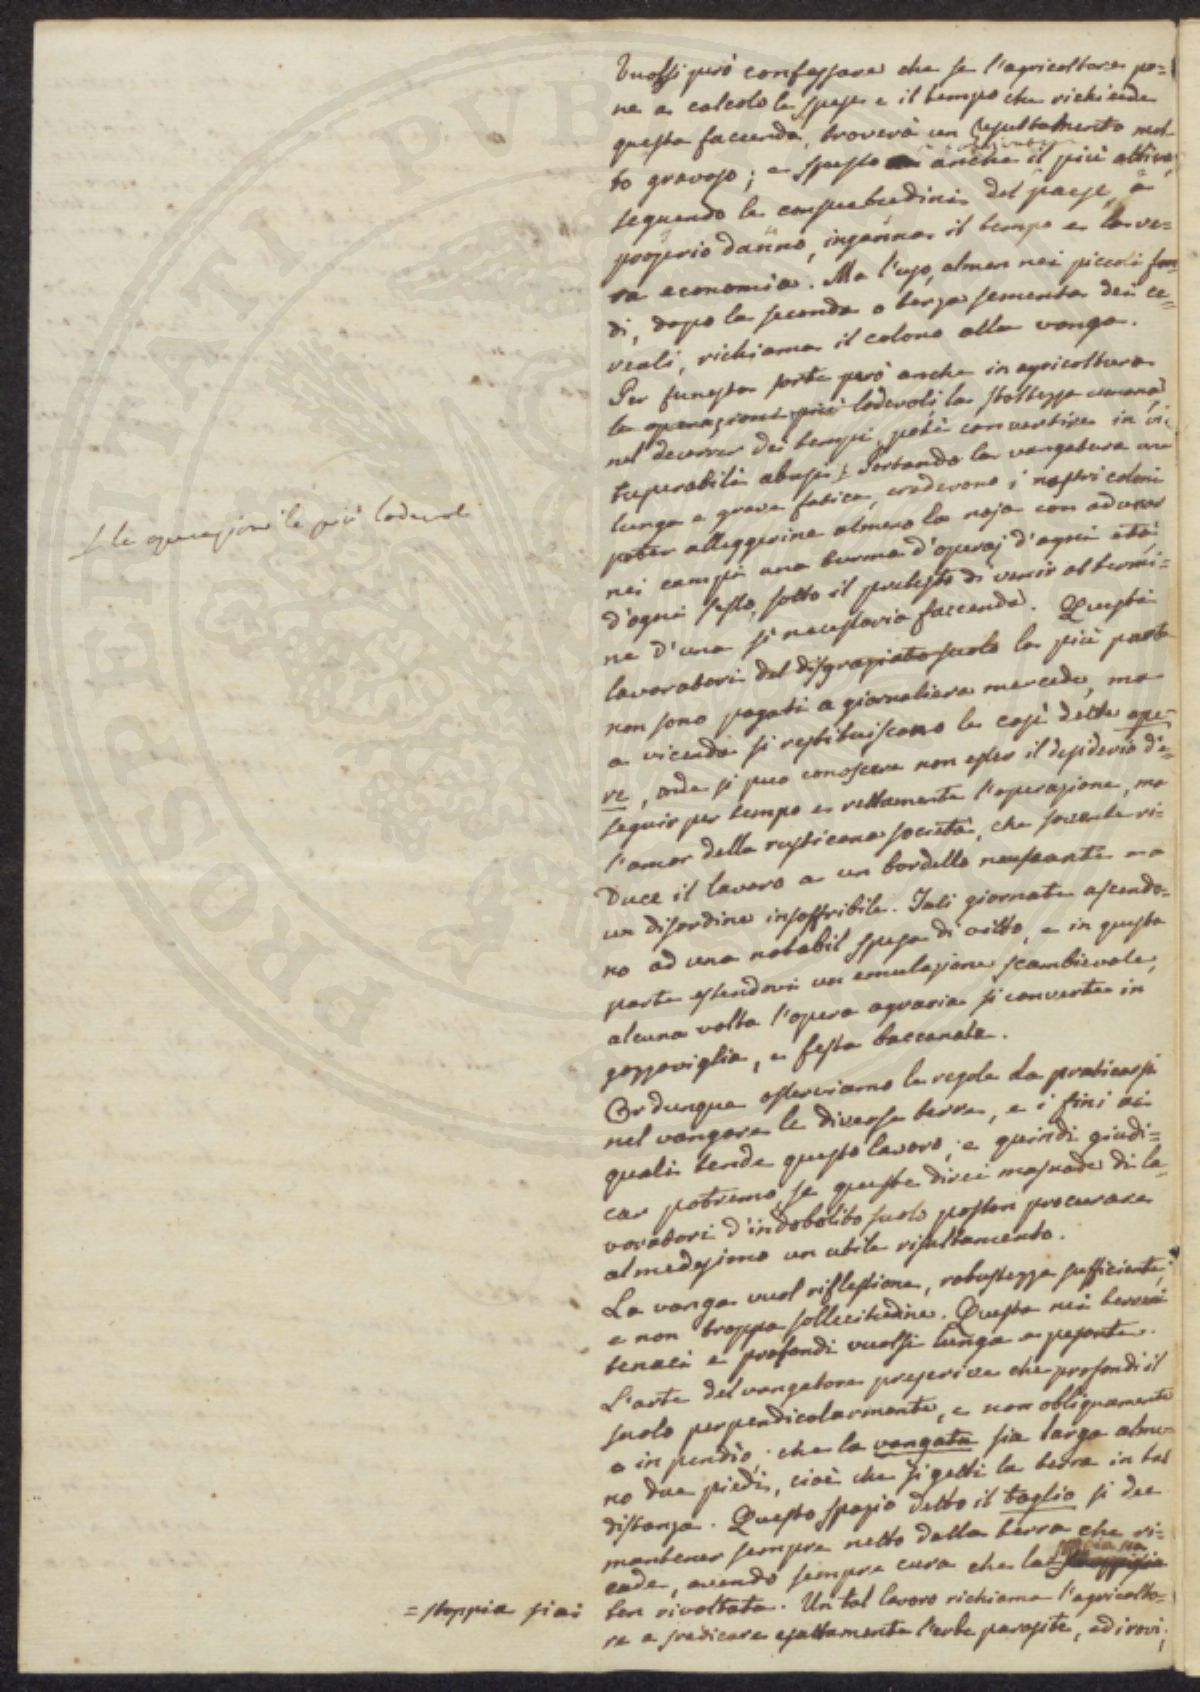 Vuolsi però confessare che se l'agricoltore po=
ne a calcolo le spese e il tempo che richiede
questa faccenda, troverà un risultamento mol
to gravoso; e spesso anche il più attivo,
seguendo le consuetudini del paese, a
proprio danno, inganna il tempo e la ve=
ra economia. Ma l'uso, almen nei piccoli fon
di, dopo la seconda o terza sementa dei ce=
reali, richiama il colono alla vanga.
Per funesta sorte però anche in agricoltura
le operazioni più lodevoli la stoltezza umana,
nel decorrer dei tempi, potè convertire in vi=
tuperabili abusi. Portando la vangatura una
lunga e grave fatica, credevano i nostri coloni
poter alleggerirne almeno la noja con adunar
nei campi una turma d'operaj d'ogni età,
d'ogni sesto, sotto il pretesto di venir al termi=
ne d'una sì necessaria faccenda. Questi
lavoratori del disgraziato suolo la più parte
non sono pagati a giornaliera mercede, ma
a vicenda si restituiscono le così dette ope=
re, onde si può conoscere non esser il desiderio d'e=
seguir per tempo e rettamente l'operazione, ma
l'amor della rusticana società, che sovente ri=
duce il lavoro a un bordello nauseante e a
un disordine insoffribile. Tali giornate ascendo=
no ad una notabil spesa di vitto, e in questa
parte essendovi un emulazione scambievole,
alcuna volta l'opera agraria si converte in
gozzoviglia, e festa baccanata.
Or dunque osserviamo le regole da praticarsi
nel vangare le diverse terre, e i fini ai
quali tende questo lavoro; e quindi giudi=
car potremo, se queste direi masnade di la=
voratori d'indebolito suolo posson procurare
al medesimo un utile risultamento.
La vanga vuol riflessione, robustezza sufficiente,
e non troppa sollecitudine. Questa nei terreni
tenaci e profondi vuolsi lunga e pesante.
L'arte del vangatore prescrive che profondi il
suolo perpendicolarmente, e non obliquamente
o in pendio; che la vangata sia larga alme=
no due piedi, cioè che si getti la terra in tal
distanza. Questo spazio detto il taglio si dee
mantener sempre netto dalla terra che ri=
cade, avendo sempre cura che la stoppia sia
ben rivoltata. Un tal lavoro richiama l'agricolto=
re a sradicare esattamente l'erbe parasite, ad i rovi,
le operazioni le più lodevoli
= stoppia siai